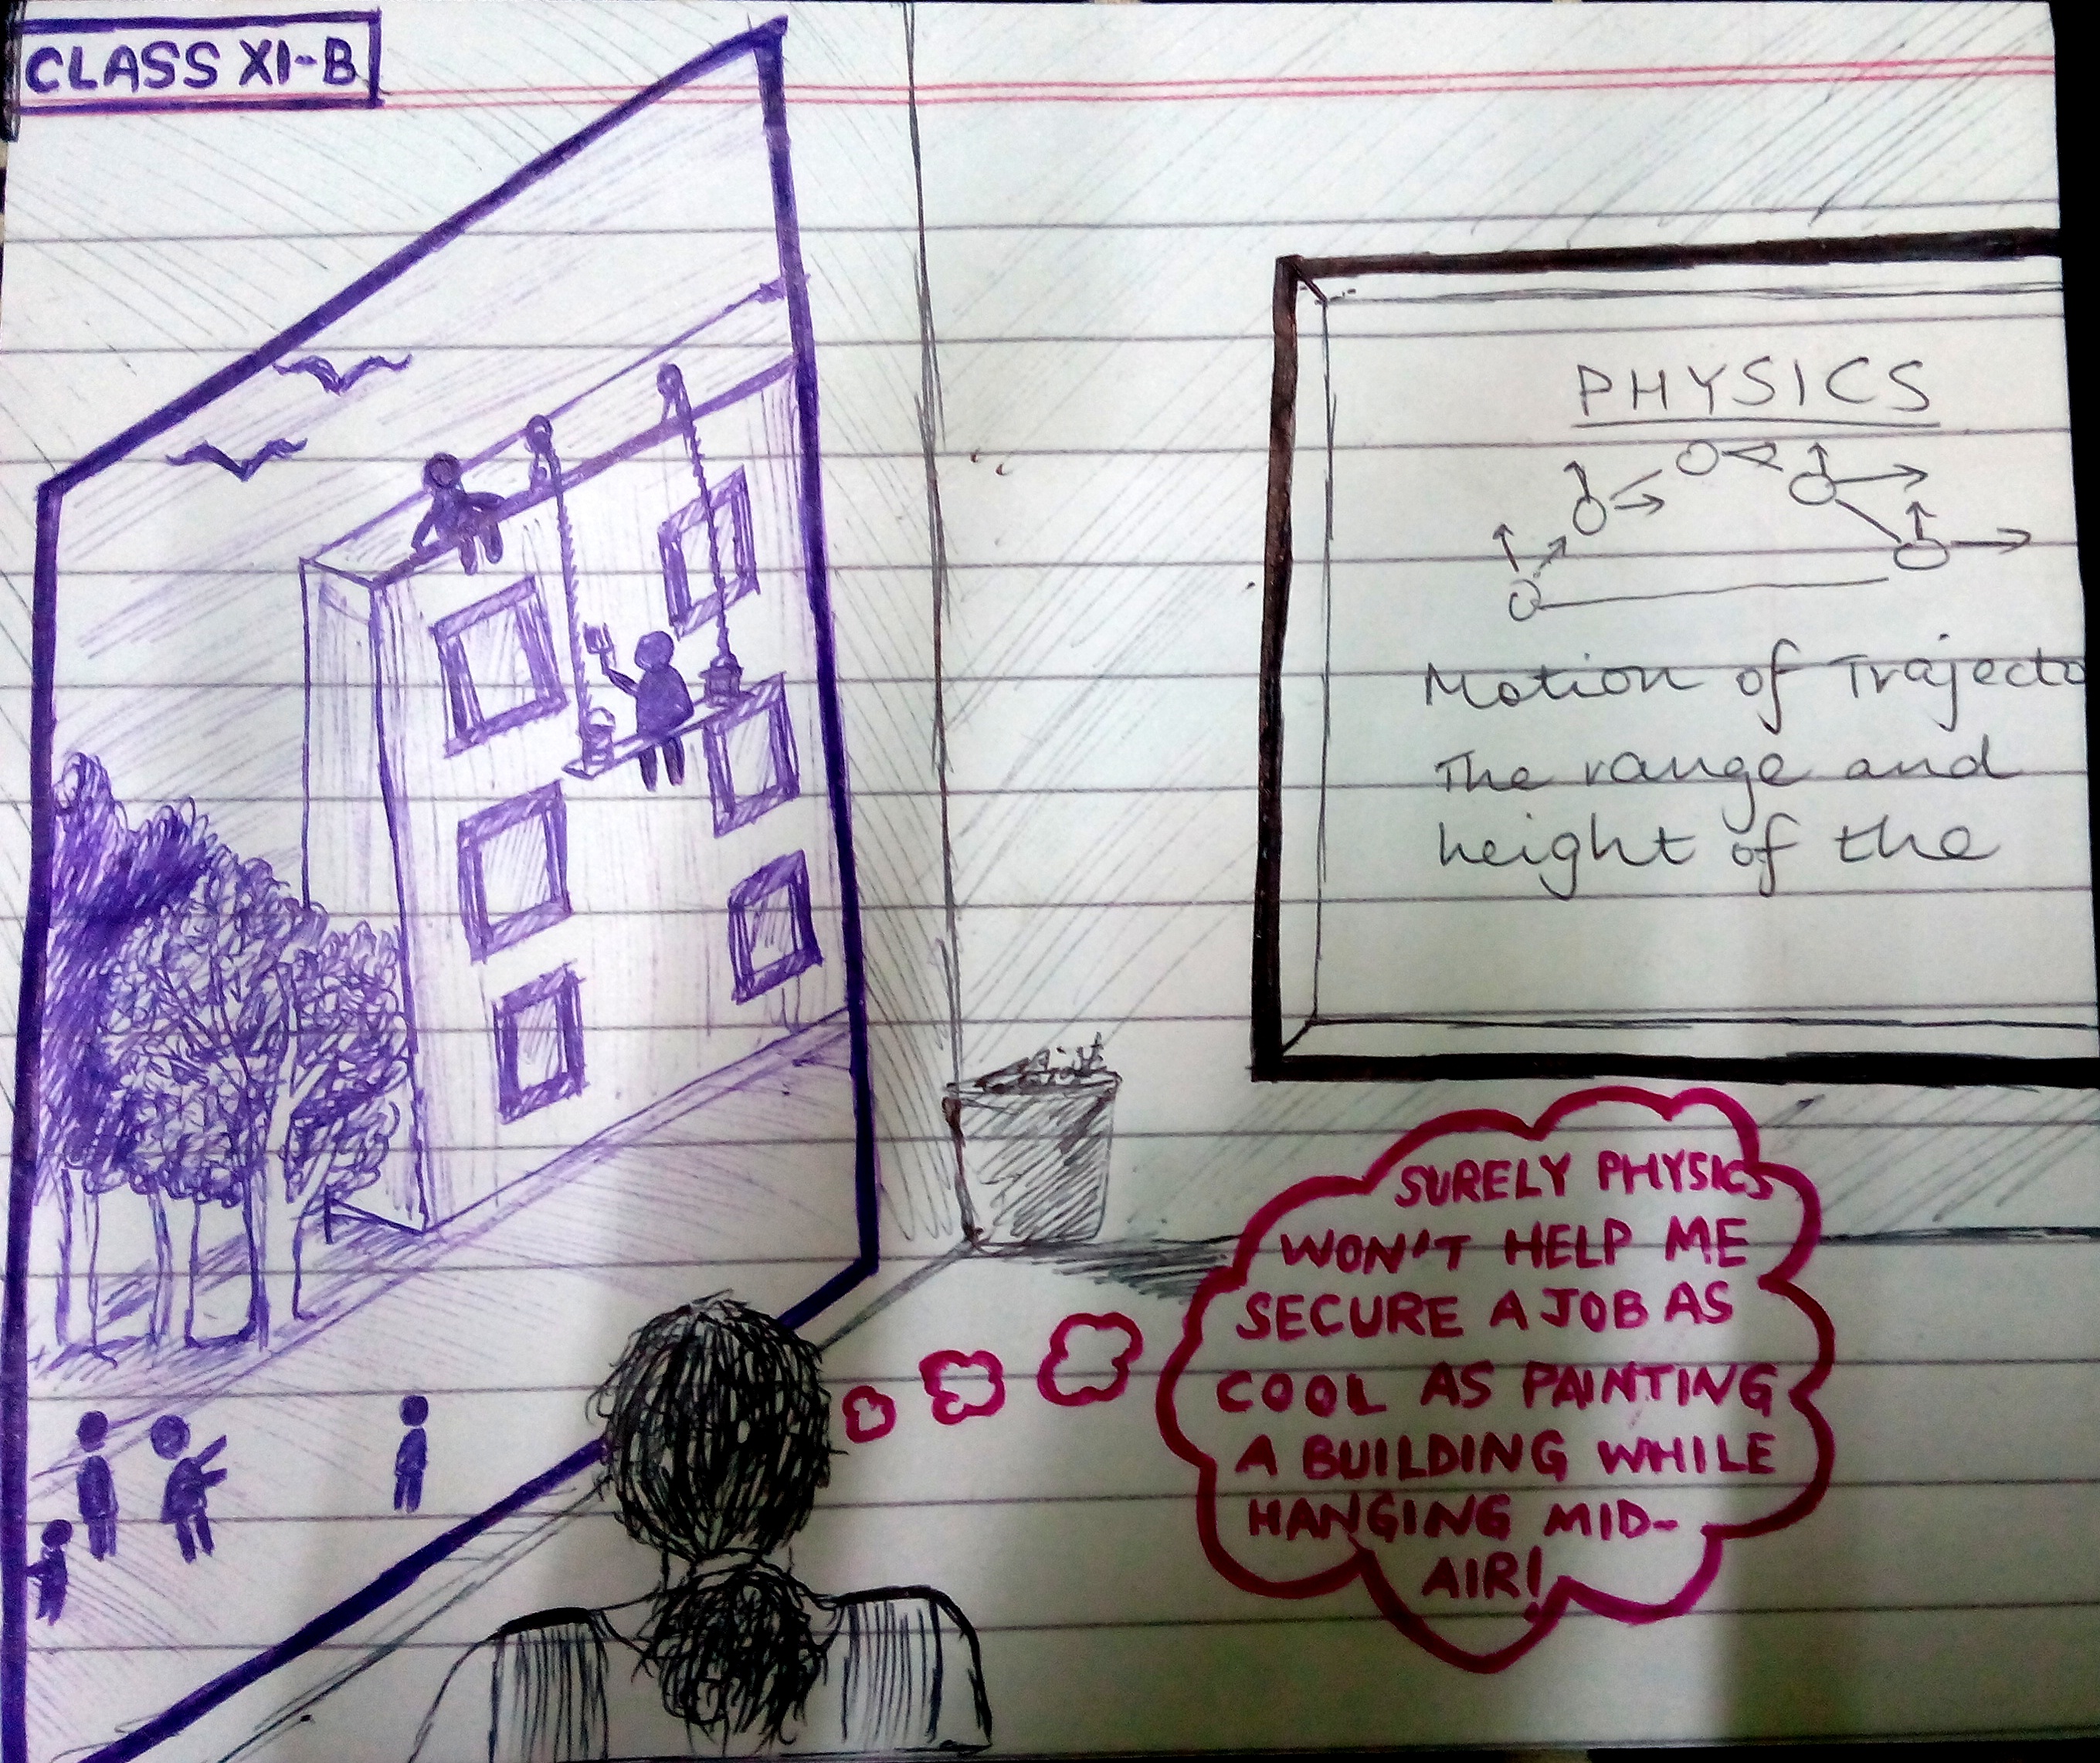 CLASS XI-B
PHYSICS
Motion of Trajecto
The range and
height of the
SURELY PHYSICS
WON'T HELP ME
SECURE A JOB AS
COOL AS PAINTING
A BUILDING WHILE
HANGING MID-
AIR!